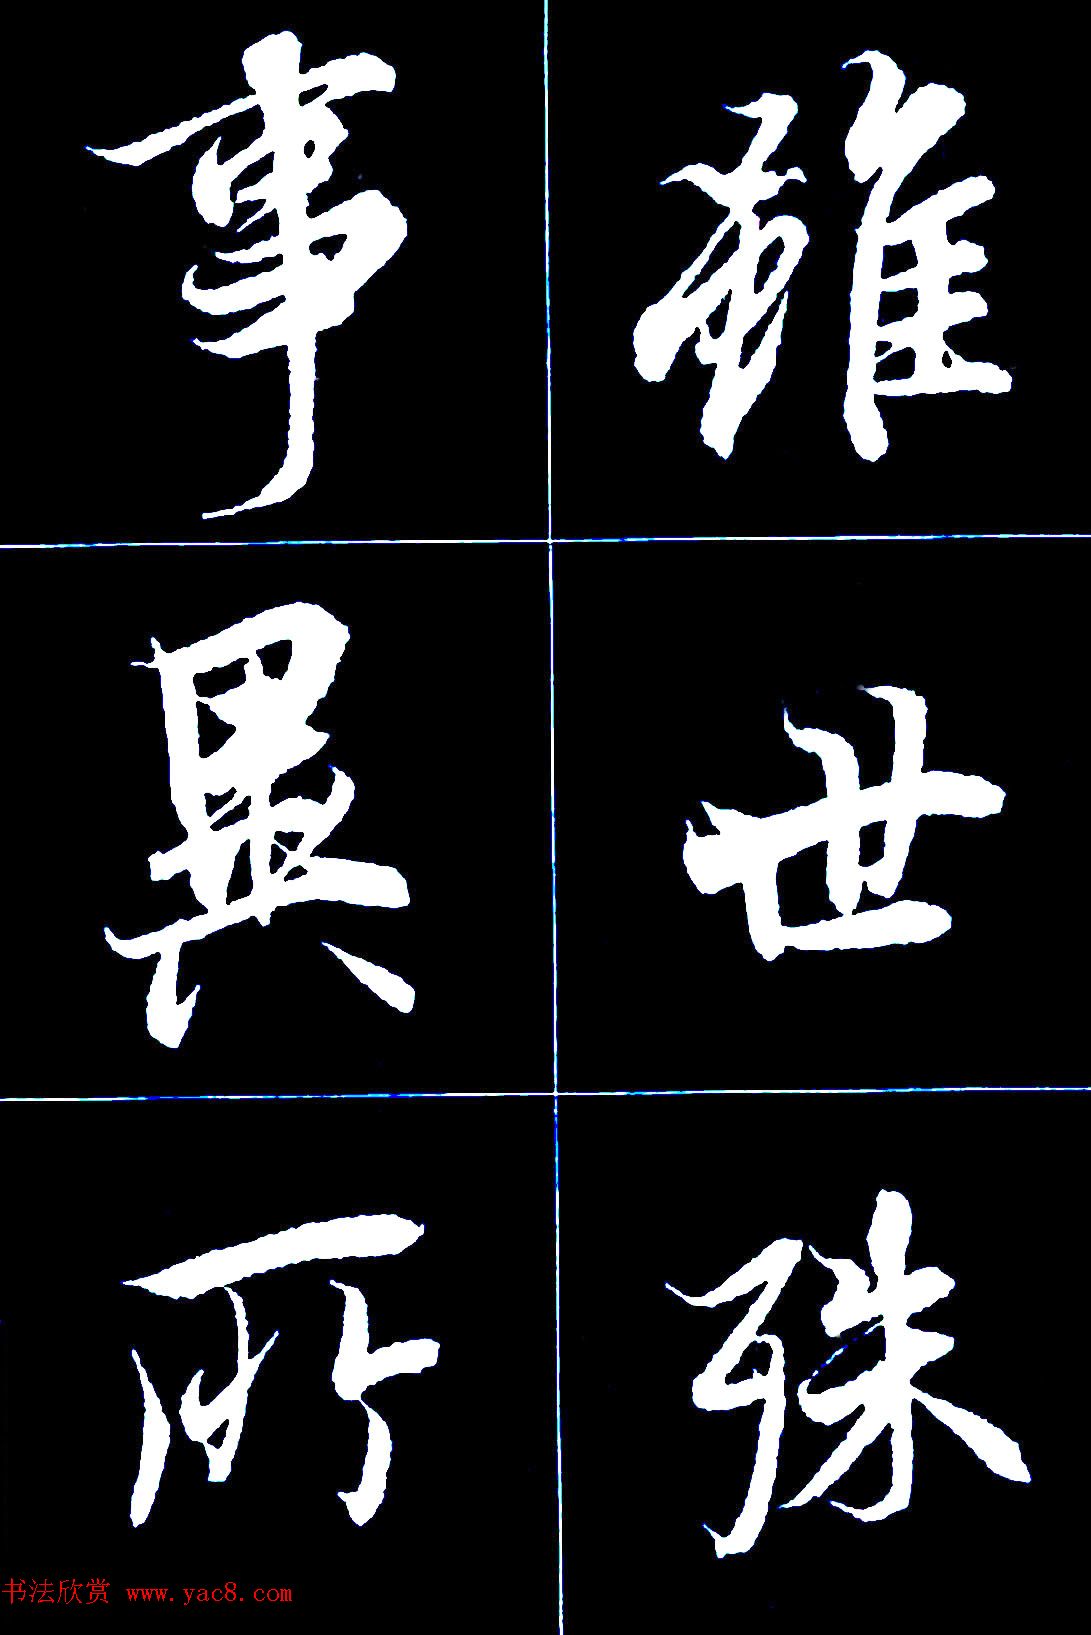 雖世殊
事異所
书法欣赏 www.yac8.com